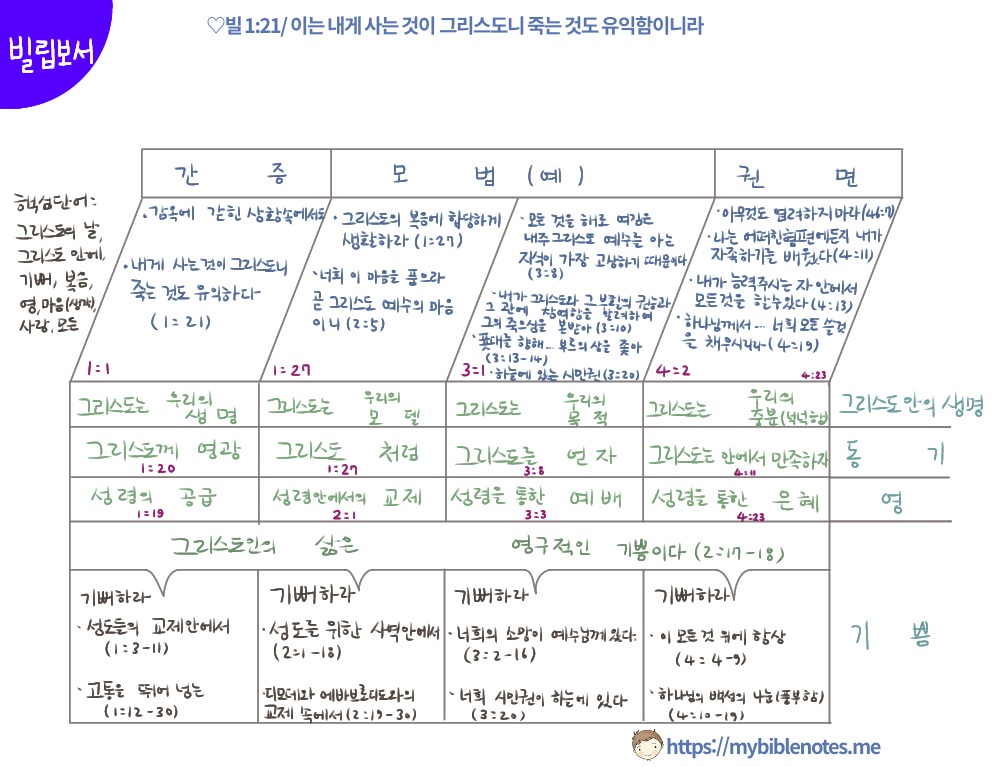 ♡빌 1:21/ 이는 내게 사는 것이 그리스도니 죽는 것도 유익함이니라
빌립보서
간 증
모 범 (예)
권 면
핵심단어:
그리스도의 날,
그리스도 안에,
기뻐, 복음,
영, 마음(생각),
사랑, 모든
·감옥에 갇힌 상황속에서도
·내게 사는것이 그리스도니
죽는 것도 유익하다
(1:21)
1:1
·그리스도의 복음에 합당하게
생활하라 (1:27)
·너희 이 마음을 품으라
곧 그리스도 예수의 마음
이니 (2:5)
1:27
·모든 것을 해로 여김은
내주 그리스도 예수를 아는
지식이 가장 고상하기 때문이다
(3:8)
·내가 그리스도와 그 부활의 권능과
그 고난에 참여함을 알려하여
그의 죽으심을 본받아 (3:10)
·푯대를 향해... 부르의 상을 좇아
(3:13-14)
·하늘에 있는 시민권 (3:20)
3:1
·아무것도 염려하지 마라 (4:6-7)
·나는 어떠한형편에든지 내가
자족하기를 배웠다 (4:11)
·내가 능력주시는 자 안에서
모든것을 할수있다 (4:13)
·하나님께서... 너희 모든 쓸것
을 채우시리라 (4:19)
4:2
4:23
그리스도는 우리의 생명
그리스도는 우리의 모델
그리스도는 우리의 목적
그리스도는 우리의 충분(넉넉함)
그리스도안의 생명
그리스도께 영광
1:20
그리스도 처럼
1:27
그리스도를 얻자
3:8
그리스도는 안에서 만족하자
4:11
동 기
성령의 공급
1:19
성령안에서의 교제
2:1
성령을 통한 예배
3:3
성령을 통한 은혜
4:23
영
그리스도인의 삶은 영구적인 기쁨이다 (2:17-18)
기뻐하라
·성도들의 교제안에서
(1:3-11)
·고통을 뛰어 넘는
(1:12-30)
기뻐하라
·성도를 위한 사역안에서
(2:1-18)
·디모데와 에바브로디도와의
교제 속에서 (2:19-30)
기뻐하라
·너희의 소망이 예수님께 있다.
(3:2-16)
·너희 시민권이 하늘에 있다
(3:20)
기뻐하라
·이 모든 것 위에 항상
(4:4-9)
·하나님의 백성의 나눔(풍부함)
(4:10-19)
기 쁨
https://mybiblenotes.me